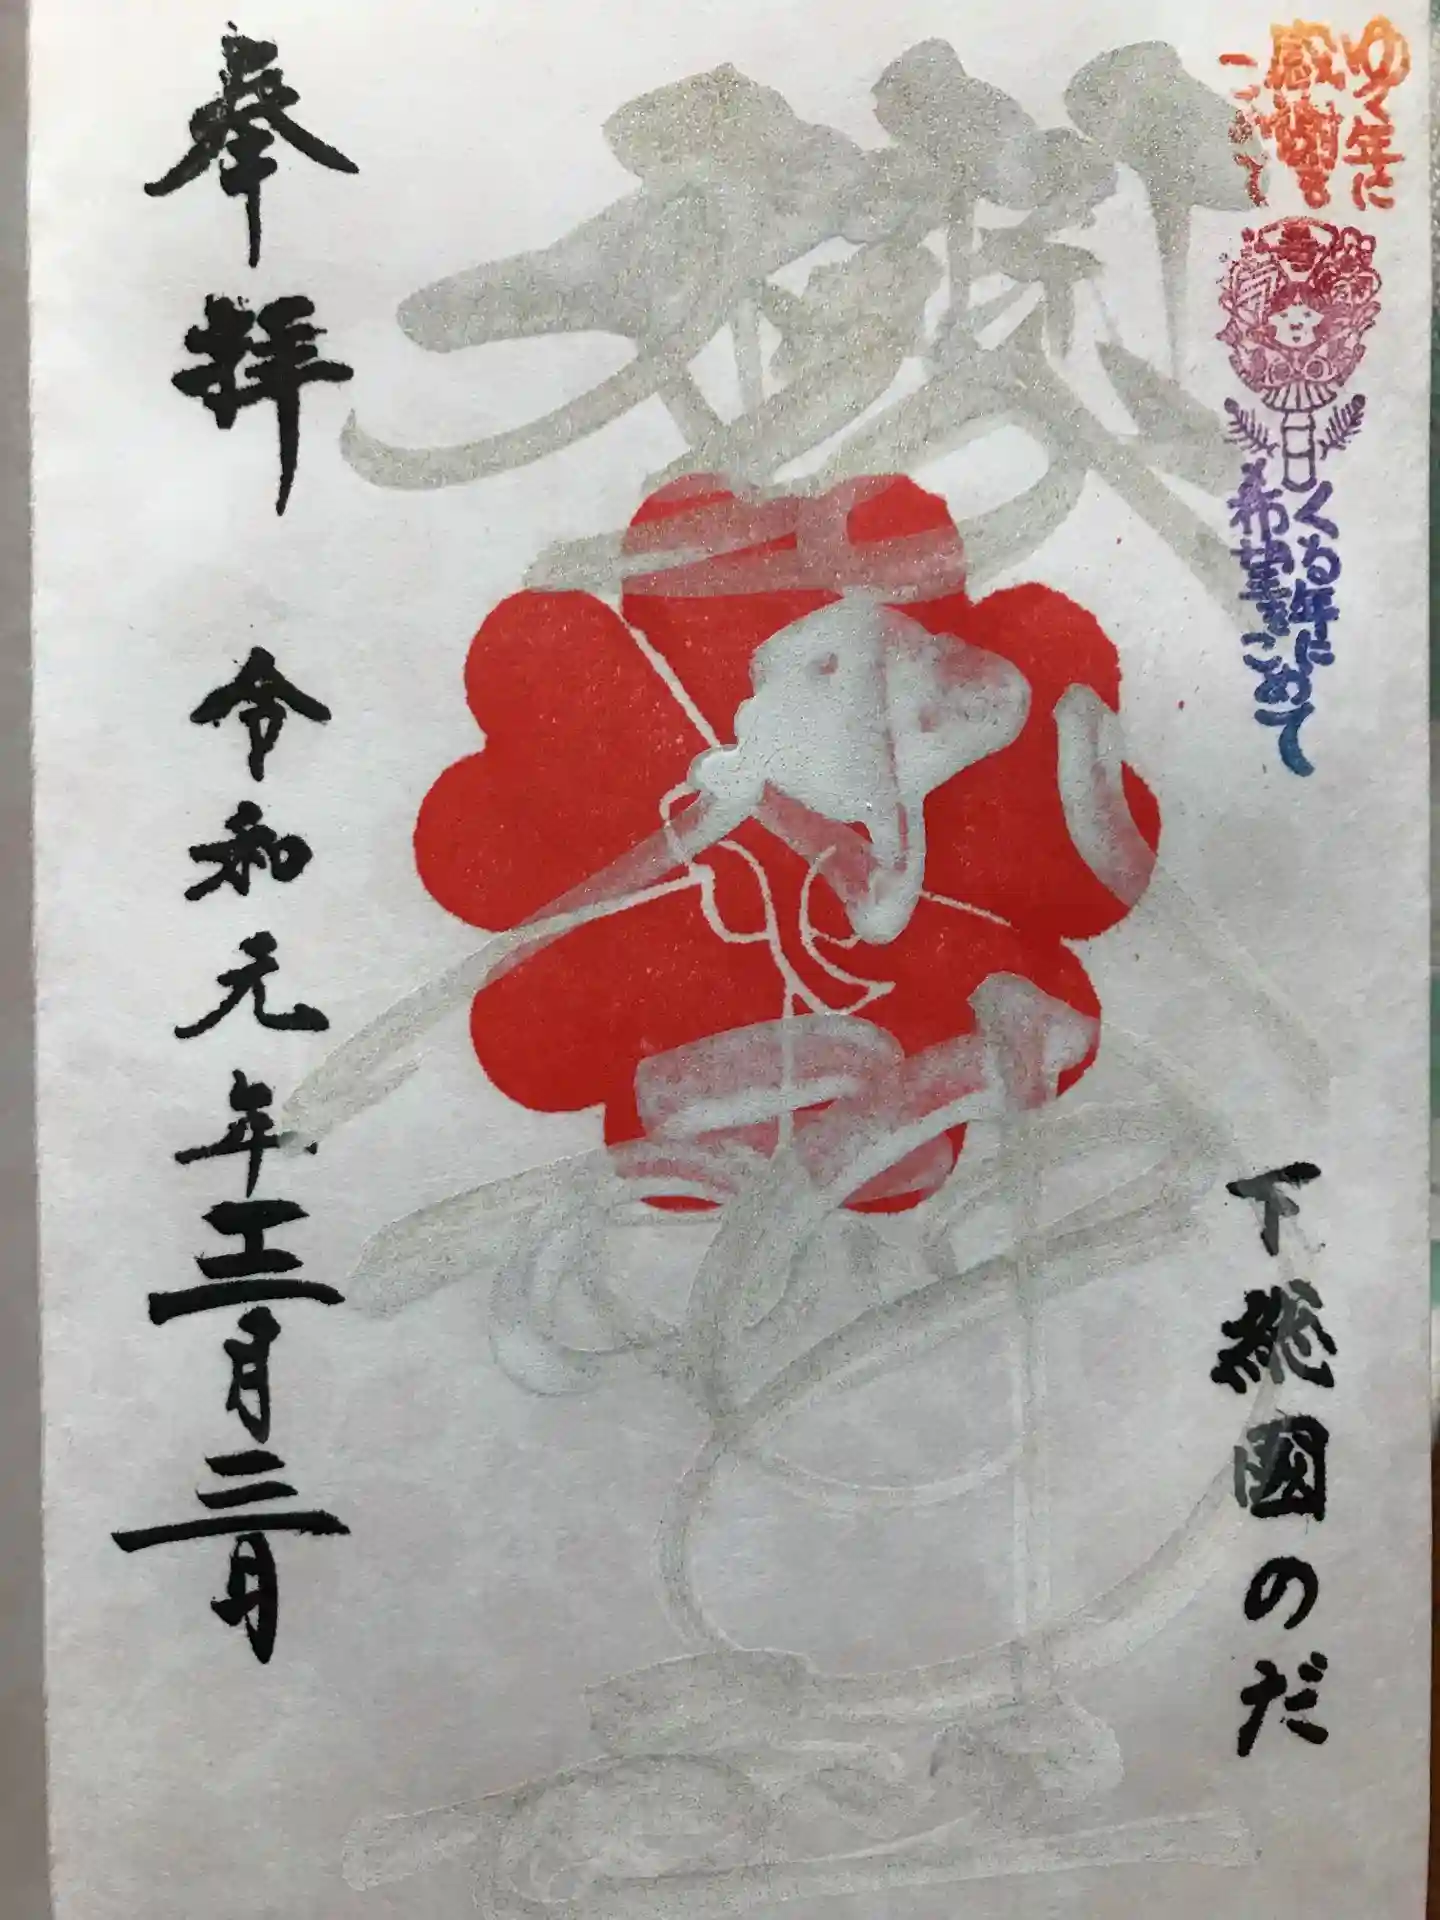 ゆく年に
感謝を
こめて
くる年に
希望をこめて
下総国のだ
櫻
奉拝
令和元年十二月三日